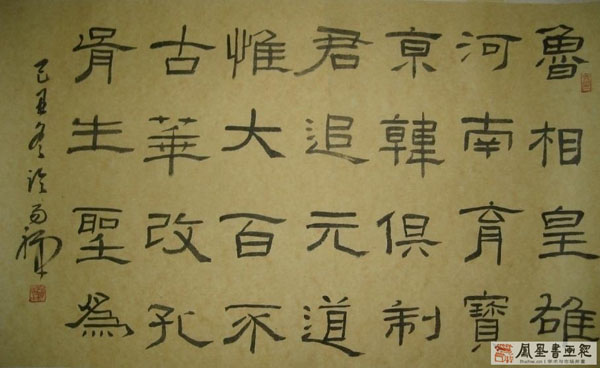 魯相皇雄
河南育寶
京韓俱制
君追元道
惟大百不
古華改孔
胥生聖為
己丑冬